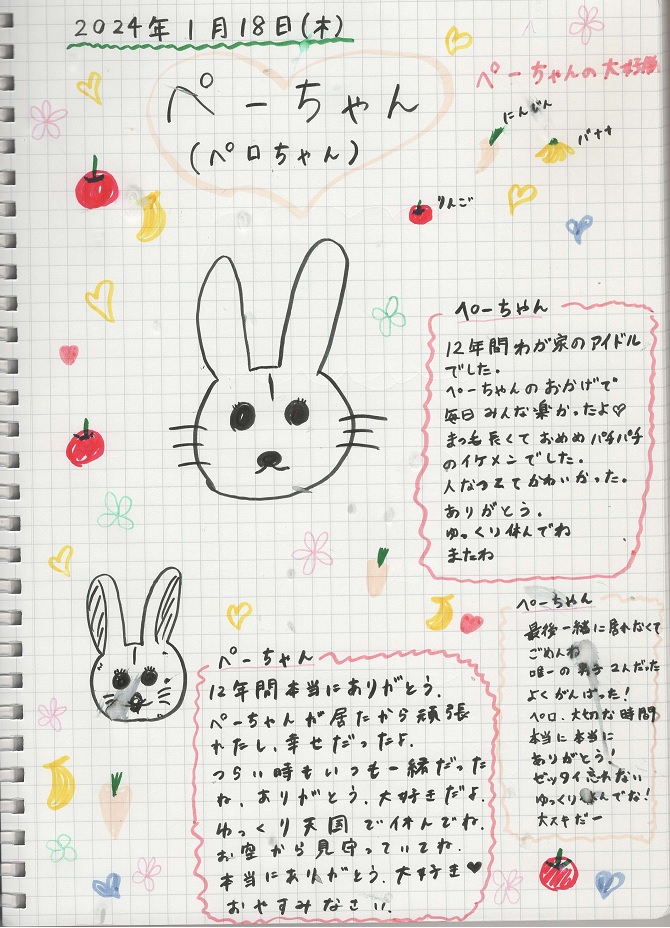 2024年1月18日(木)
ぺーちゃん
(ペロちゃん)
ぺーちゃんの大好物
にんじん
バナナ
りんご
ぺーちゃん
12年間わが家のアイドル
でした。
ぺーちゃんのおかげで
毎日みんな楽かったよ♡
まつ毛長くておめめパチパチ
のイケメンでした。
人なつこてかわいかった。
ありがとう。
ゆっくり休んでね
またね
ぺーちゃん
最後一緒に居れなくて
ごめんね
唯一の男子2人だった
よくがんばった!
ペロ、大切な時間
本当に本当に
ありがとう!
ゼッタイ忘れない
ゆっくり休んでな!
大スキだー
ぺーちゃん
12年間本当にありがとう。
ペーちゃんが居たから頑張
れたし、幸せだったよ。
つらい時もいつも一緒だった
ね、ありがとう。大好きだよ。
ゆっくり天国で休んでね。
お空から見守っていてね。
本当にありがとう。大好き♥
おやすみなさい。